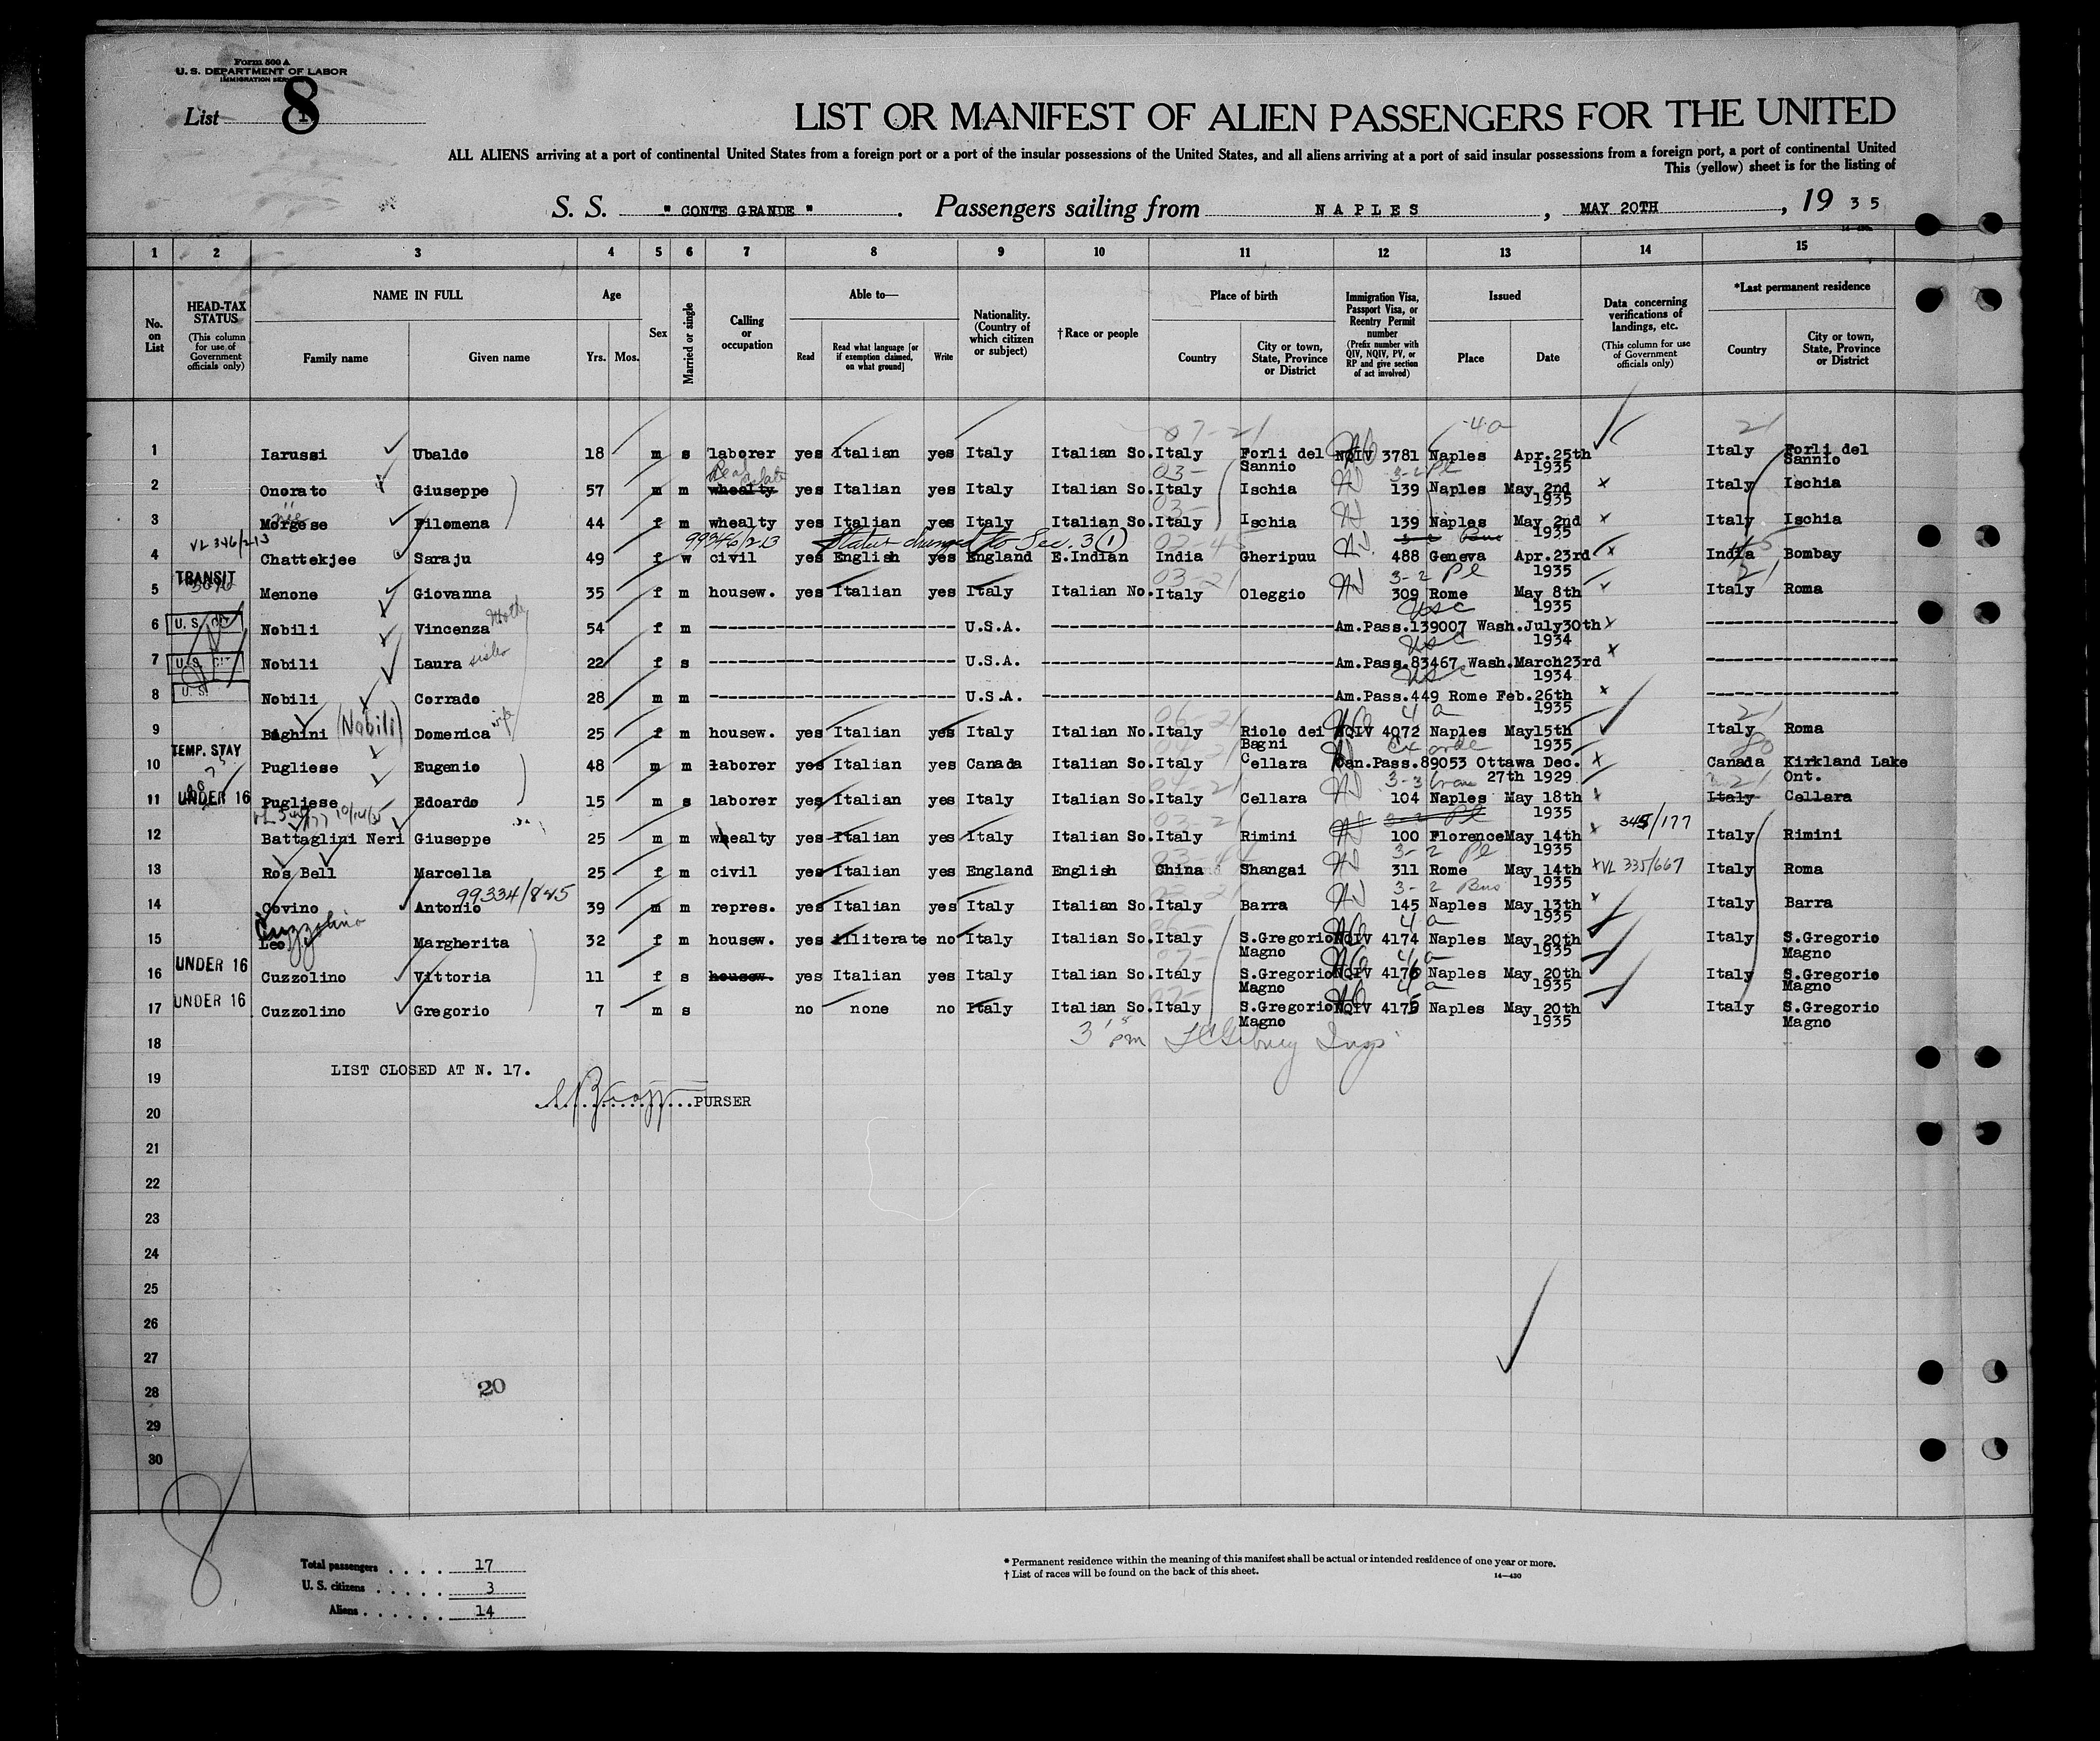 Form 500 A
U. S. DEPARTMENT OF LABOR
IMMIGRATION SERVICE
List 8
LIST OR MANIFEST OF ALIEN PASSENGERS FOR THE UNITED
ALL ALIENS arriving at a port of continental United States from a foreign port or a port of the insular possessions of the United States, and all aliens arriving at a port of said insular possessions from a foreign port, a port of continental United
This (yellow) sheet is for the listing of
S. S. " CONTE GRANDE " . Passengers sailing from N A P L E S , MAY 20TH , 19 3 5
1 2 3 4 5 6 7 8 9 10 11 12 13 14 15
No. on List
HEAD-TAX STATUS (This column for use of Government officials only)
NAME IN FULL Family name Given name
Age Yrs. Mos.
Sex
Married or single
Calling or occupation
Able to— Read Read what language [or if exemption claimed, on what ground] Write
Nationality. (Country of which citizen or subject)
†Race or people
Place of birth Country City or town, State, Province or District
Immigration Visa, Passport Visa, or Reentry Permit number (Prefix number with QIV, NQIV, PV, or RP and give section of act involved)
Issued Place Date
Data concerning verifications of landings, etc. (This column for use of Government officials only)
*Last permanent residence Country City or town, State, Province or District
07-21 4a 21
1 Iarussi Ubaldo 18 m s laborer yes Italian yes Italy Italian So. Italy Forli del Sannio NQIV 3781 Naples Apr.25th 1935 Italy Forli del Sannio
Real estate 03- 3-2 Pl
2 Onorato Giuseppe 57 m m whealty yes Italian yes Italy Italian So. Italy Ischia 139 Naples May 2nd 1935 x Italy Ischia
nee 03-
3 Morgese Filomena 44 f m whealty yes Italian yes Italy Italian So. Italy Ischia 139 Naples May 2nd 1935 x Italy Ischia
VL 346/213 99346/213 Status changed to Sec. 3 (1) 3-2 Bus
4 Chattekjee Saraju 49 f w civil yes English yes England E.Indian India Gheripuu 488 Geneva Apr.23rd 1935 x India Bombay
TRANSIT 03-21 3-2 Pl 21
5 Menone Giovanna 35 f m housew. yes Italian yes Italy Italian No. Italy Oleggio 309 Rome May 8th 1935 Italy Roma
U. S. CIT Mother USC
6 Nobili Vincenza 54 f m ---------- U.S.A. ---------- Am.Pass.139007 Wash.July30th 1934 x ----------
U. S. CIT sister USC
7 Nobili Laura 22 f s ---------- U.S.A. ---------- Am.Pass.83467 Wash.March23rd 1934 x ----------
U. S. USC
8 Nobili Corrado 28 m m ---------- U.S.A. ---------- Am.Pass.449 Rome Feb.26th 1935 x ----------
(Nobili) wife 06-21 4 a 21
9 Baghini Domenica 25 f m housew. yes Italian yes Italy Italian No. Italy Riolo dei Bagni NQIV 4072 Naples May15th 1935 Italy Roma
TEMP. STAY
10 Pugliese Eugenio 48 m m laborer yes Italian yes Canada Italian So. Italy Cellara Can.Pass.89053 Ottawa Dec. 27th 1929 x Canada Kirkland Lake Ont.
UNDER 16 21
11 Pugliese Edoardo 15 m s laborer yes Italian yes Italy Italian So. Italy Cellara 104 Naples May 18th 1935 x Italy Cellara
03-21 3-2 Pl 345/177
12 Battaglini Neri Giuseppe 25 m m whealty yes Italian yes Italy Italian So. Italy Rimini 100 Florence May 14th 1935 x Italy Rimini
3-2 Pl
13 Ros Bell Marcella 25 f m civil yes Italian yes England English China Shangai 311 Rome May 14th 1935 x VL 335/667 Italy Roma
99334/845 3-2 Bus
14 Covino Antonio 39 m m repres. yes Italian yes Italy Italian So. Italy Barra 145 Naples May 13th 1935 x Italy Barra
Cuzzolino 4 a
15 Leo Margherita 32 f m housew. yes illiterate no Italy Italian So. Italy S.Gregorio Magno NQIV 4174 Naples May 20th 1935 Italy S.Gregorio Magno
UNDER 16 07- 4 a
16 Cuzzolino Vittoria 11 f s housew. yes Italian yes Italy Italian So. Italy S.Gregorio Magno NQIV 4176 Naples May 20th 1935 Italy S.Gregorio Magno
UNDER 16 07- 4 a
17 Cuzzolino Gregorio 7 m s no none no Italy Italian So. Italy S.Gregorio Magno NQIV 4175 Naples May 20th 1935 Italy S.Gregorio Magno
18 3 15 pm Insp
19 LIST CLOSED AT N. 17.
PURSER
20
21
22
23
24
25
26
27
28
20
29
30
8
Total passengers . . . . 17
U. S. citizens . . . . . 3
Aliens . . . . . . 14
* Permanent residence within the meaning of this manifest shall be actual or intended residence of one year or more.
† List of races will be found on the back of this sheet.
14—430